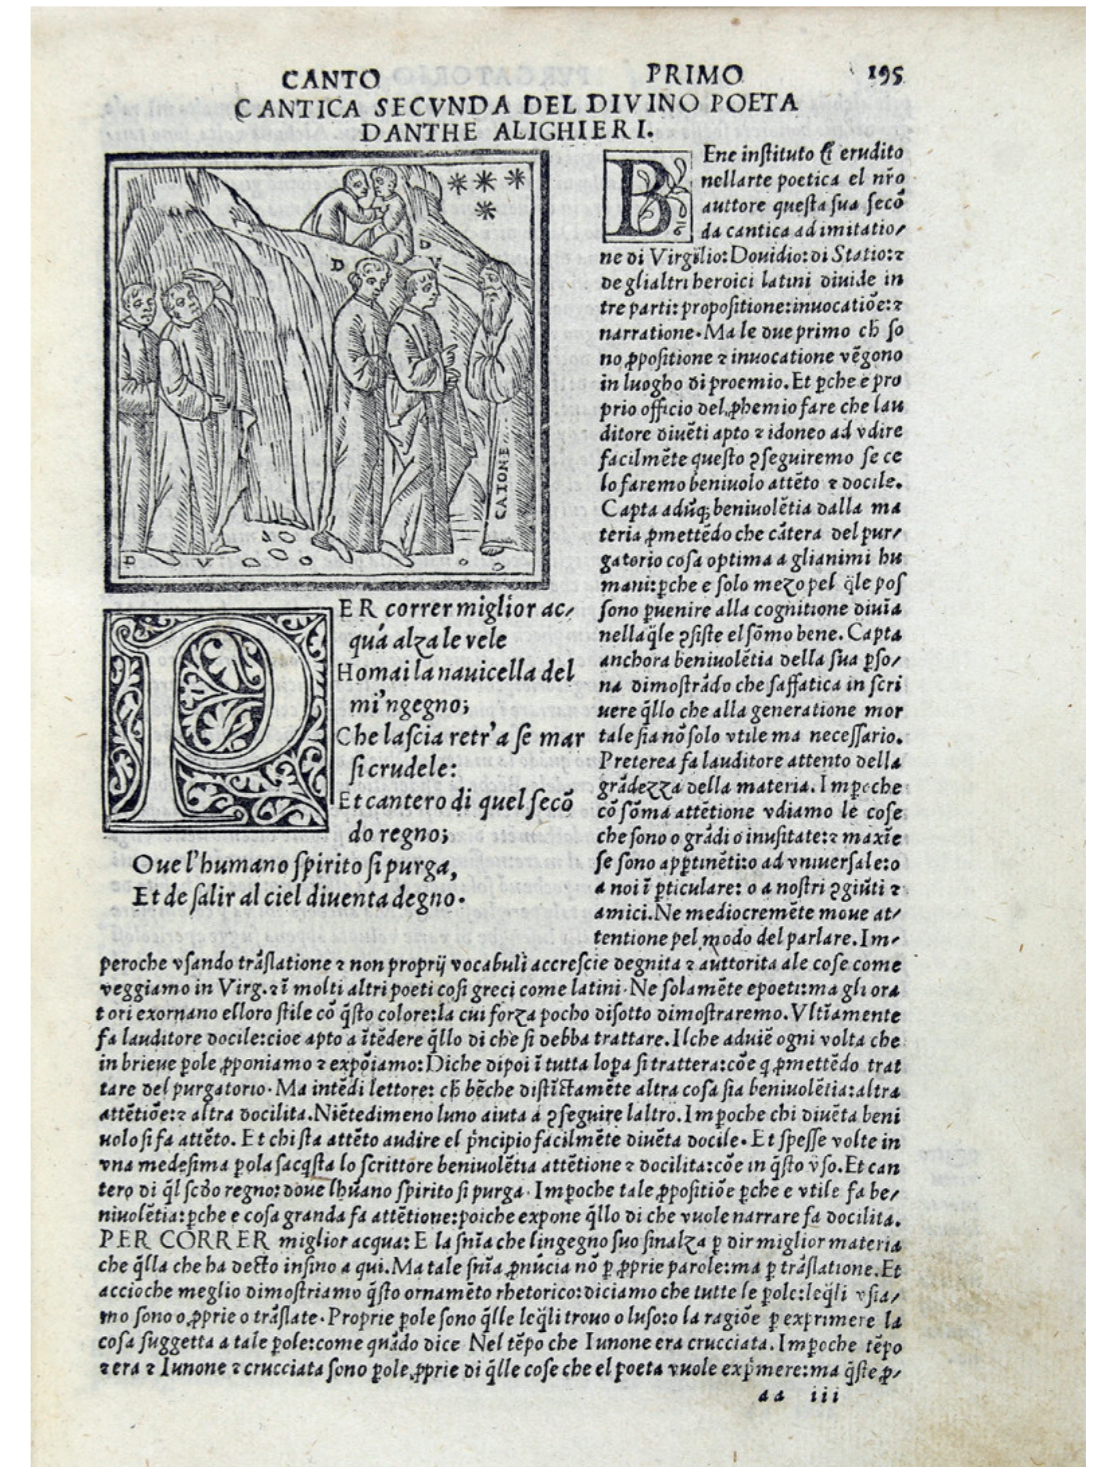 CANTO PRIMO 195
CANTICA SECVNDA DEL DIVINO POETA
DANTHE ALIGHIERI.
D
D V
CATONE
D V
PER correr miglior ac/
qua alza le vele
Homai la nauicella del
mi'ngegno;
Che lascia retr'a se mar
si crudele:
Et cantero di quel secō
do regno;
Oue l'humano spirito si purga,
Et de salir al ciel diuenta degno.
BEne instituto & erudito
nellarte poetica el nr̄o
auttore questa sua secō
da cantica ad imitatio/
ne di Virgilio: Douidio: di Statio: ⁊
de glialtri heroici latini diuide in
tre parti: propositione: inuocatiōe: ⁊
narratione. Ma le due primo ch̄ so
no ꝓpositione ⁊ inuocatione vēgono
in luogho di proemio. Et ꝑche e pro
prio officio del ꝓhemio fare che lau
ditore diuēti apto ⁊ idoneo ad vdire
facilmēte questo ꝯseguiremo se ce
lo faremo beniuolo attēto ⁊ docile.
Capta adūq; beniuolētia dalla ma
teria ꝓmettēdo che cātera del pur/
gatorio cosa optima a glianimi hu
mani: ꝑche e solo mezo pel q̄le pos
sono ꝑuenire alla cognitione diuīa
nella q̄le ꝯsiste el sōmo bene. Capta
anchora beniuolētia della sua ꝑso/
na dimostrādo che saffatica in scri
uere q̄llo che alla generatione mor
tale sia nō solo vtile ma necessario.
Preterea fa lauditore attento della
grādezza della materia. Imꝑoche
cō sōma attētione vdiamo le cose
che sono o grādi o inusitate: ⁊ maxīe
se sono apꝑtinēti: o ad vniuersale: o
a noi ī ꝑticulare: o a nostri ꝯgiūti ⁊
amici. Ne mediocremēte moue at/
tentione pel modo del parlare. Im/
peroche vsando trāslatione ⁊ non proprij vocabuli accrescie degnita ⁊ auttorita ale cose come
veggiamo in Virg. ⁊ ī molti altri poeti cosi greci come latini. Ne solamēte e poeti: ma gli ora
tori exornano elloro stile cō q̄sto colore: la cui forza pocho disotto dimostraremo. Vltīamente
fa lauditore docile: cioe apto a ītēdere q̄llo di che si debba trattare. Ilche aduiē ogni volta che
in brieue ꝑole ꝓponiamo ⁊ expōiamo: Di che dipoi ī tutta lopa si trattera: cōe q ꝓmettēdo trat
tare del purgatorio. Ma intēdi lettore: ch̄ bēche distīctamēte altra cosa sia beniuolētia: altra
attētiōe: ⁊ altra docilita. Niētedimeno luno aiuta a ꝯseguire laltro. Imꝑoche chi diuēta beni
uolo si fa attēto. Et chi sta attēto audire el pr̄ncipio facilmēte diuēta docile. Et spesse volte in
vna medesima ꝑola sacq̄sta lo scrittore beniuolētia attētione ⁊ docilita: cōe in q̄sto vso. Et can
tero di q̄l scd̄o regno: doue lhūano spirito si purga. Imꝑoche tale ꝓpositiōe ꝑche e vtile fa be/
niuolētia: ꝑche e cosa granda fa attētione: poiche expone q̄llo di che vuole narrare fa docilita.
PER CORRER miglior acqua: E la snīa che lingegno suo sinalza ꝑ dir miglior materia
che q̄lla che ha decto insino a qui. Ma tale snīa ꝓnūcia nō ꝑ ꝓprie parole: ma ꝑ trāslatione. Et
accioche meglio dimostriamo q̄sto ornamēto rhetorico: diciamo che tutte le ꝑole: leq̄li vsia/
mo sono o ꝓprie o trāslate. Proprie ꝑole sono q̄lle leq̄li trouo o luso: o la ragiōe ꝑ exprimere la
cosa suggetta a tale ꝑole: come quādo dice Nel tēpo che Iunone era crucciata. Imꝑoche tēpo
⁊ era ⁊ Iunone ⁊ crucciata sono ꝑole ꝓprie di q̄lle cose che el poeta vuole expmere: ma q̄ste ꝓ/
aa iii